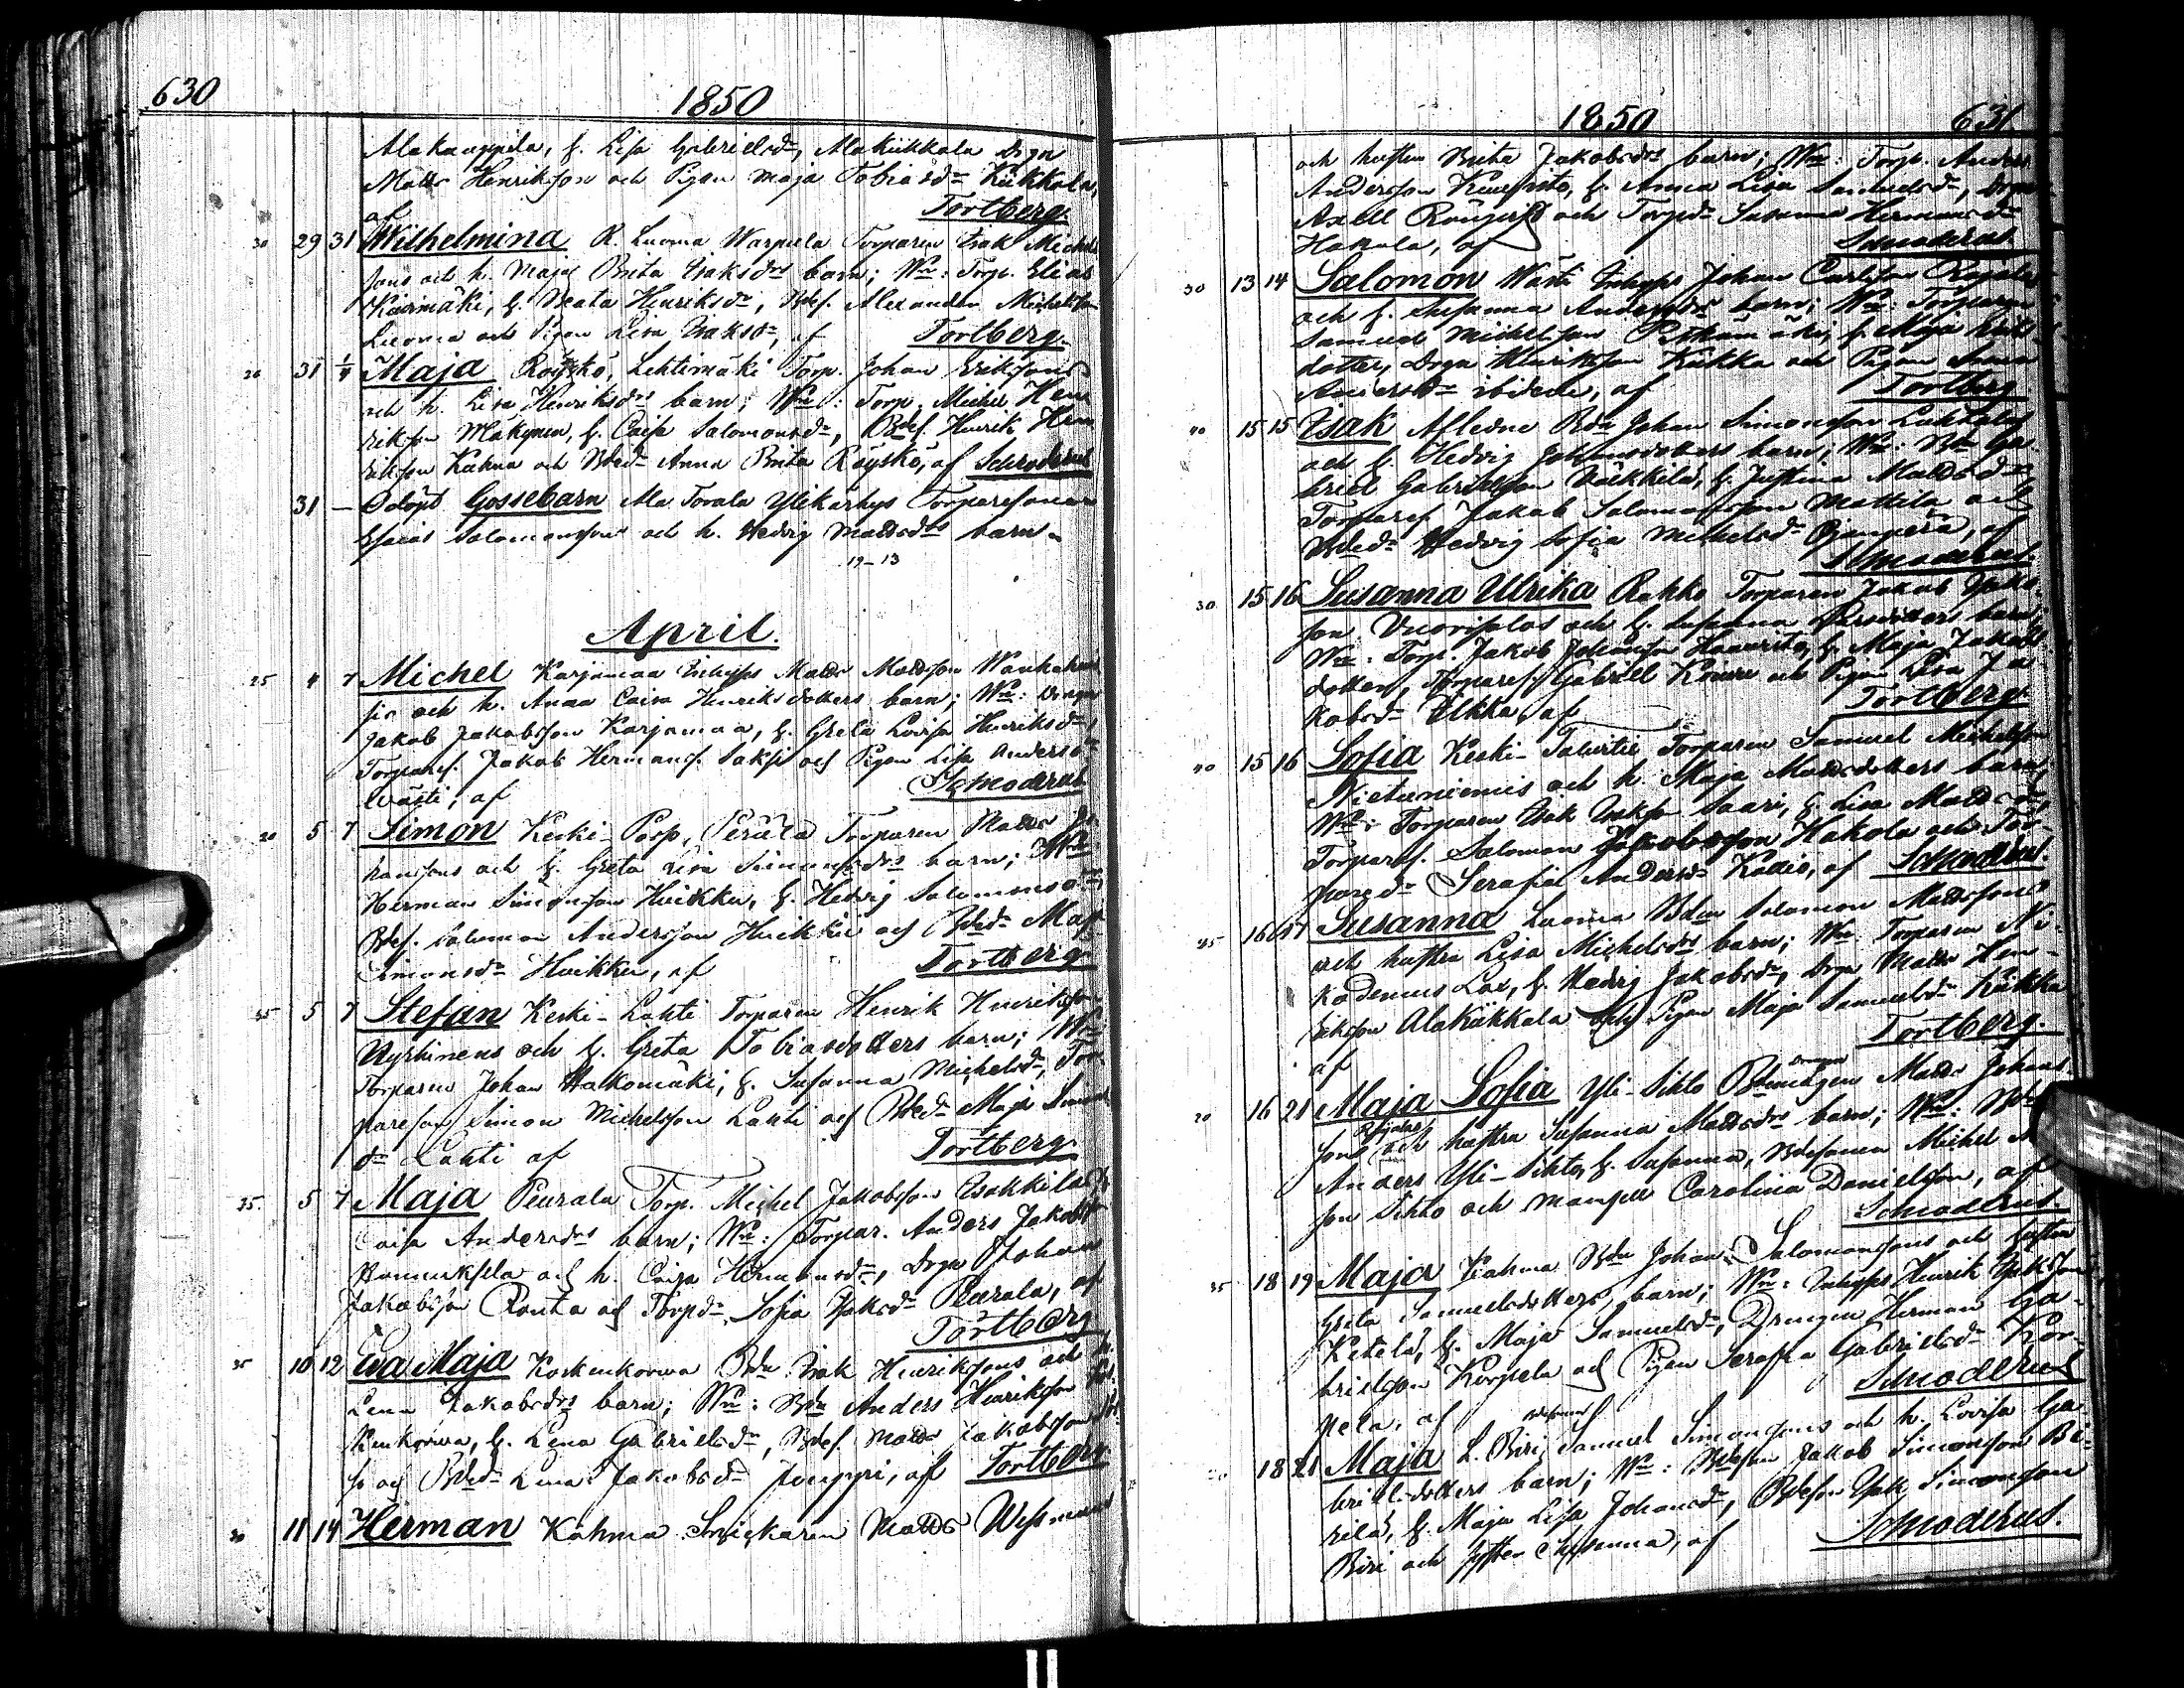 630
1850
Alakauppila, h. Lisa Gabrielsdr, Alakiikkala Drgn
Matts Henriksson och Pigan Maja Tobiasdr Kiikkala,
af Tortberg.
30 29 31 Wilhelmina R. Luoma Warpula Torparen Isak Michels
sons och h. Maja Brita Isaksdrs barn; Wne: Torp. Elias
h. Beata Henriksdr, Bdes. Alexander Michelsson
Luoma och Pigan Lisa Isaksdr, af Tortberg.
26 31 1/4 Maja Röyskö, Lehtimäki Torp. Johan Erikssons
och h. Lisa Henriksdrs barn; Wne: Torp. Michel Hen
riksson Mäkynen, h. Caisa Salomonsdr, Bdes. Henrik Hen
riksson Kahma och Bdedr Anna Brita Röyskö, af Schroderus
31 — Odöpt Gossebarn Ala Torala Ylikärhys Torparesonen
Esaias Salomonssons och h. Hedvig Mattsdrs barn.
19-13
April.
25 4 7 Michel Karjanmaa Inhyss Matts Mattsson
och h. Anna Caisa Henriksdotters barn; Wne: Drengen
Jakob Jakobsson Karjanmaa, h. Greta Lovisa Henriksdr,
Torpares. Jakob Hermans. Saksi och Pigan Lisa Andersdr
Wästi, af Schroderus
20 5 7 Simon Keski-Porp, Perälä Torparen Matts
hanssons och h. Greta Lisa Simonsdrs barn; Wne:
Herman Simonsson Huikku, h. Hedvig Salomonsdr,
Bdes. Salomon Andersson Huikku och Bdedr Maja
Simonsdr Huikku, af Tortberg
45 5 7 Stefan Keski-Lahti Torparen Henrik Henriksson
Nyrhinens och h. Greta Tobiasdotters barn; Wne:
Torparen Johan Halkomäki, h. Susanna Michelsdr, Tor
pareson Simon Michelsson Lahti och Bdedr Maja Simons
dr Lahti af Tortberg.
35. 5 7 Maja Peurala Torp. Michel Jakobsson Isakkila h.
Caisa Andersdrs barn; Wne: Torpar. Anders Jakobsson
och h. Caisa Hermansdr, Drgn Johan
Jakobsson Ranta och Torpdr Sofia Isaksdr Peurala, af
Tortberg
35 10 12 Eva Maja Koskenkorwa Bdn Isak Henrikssons och h.
Lena Jakobsdrs barn; Wne: Bdn Anders Henriksson Kos
kenkorwa, h. Lena Gabrielsdr, Bdes. Matts Jakobsson
och Bdedr Lena Jakobsdr Jouppi, af Tortberg
30 11 14 Herman Kahma Snickaren Matts Wessmans
1850 631
och hustrun Brita Jakobsdrs barn; Wne: Torp. Anders
Andersson h. Anna Lisa Samuelsdr, Drgn
Axell och Torpdr Susanna Hermansdr
Hakala, af Schroderus
30 13 14 Salomon Wästi Inhyss Johan Carlsson
och h. Susanna Andersdrs barn; Wne: Torparen
Samuel Michelsson Pitkämäki, h. Maja Eriks
dotter, Drgn Henriksson Kiikka och Pigan Anna
Andersdr ibidem, af Tortberg
40 15 15 Isak Afledne Bdn Johan Simonsson
och h. Hedvig Johansdotters barn; Wne: Bdn Ga
briel Gabrielsson h. Justina Mattsdr
Torpares. Jakob Salomonsson Mattila och
Bdedr Hedvig Sofia Michelsdr Ojanperä, af
Schroderus.
30 15 16 Susanna Ulrika Rahko Torparen Jakob Isaks
son och h. Susanna barn;
Wne: Torp. Jakob Johansson h. Maja Jakobs
dotter, Torpares. Gabriel och Pigan Lisa Ja
kobsdr Ulkka, af Tortberg
40 15 16 Sofia Keski-Talwitie Torparen Samuel Michelsson
Nietuniemis och h. Maja Mattsdotters barn,
Wne: Torparen Isak Isaksson Saari, h. Lisa Mattsdr,
Torpares. Salomon Jakobsson Hakola och Tor
paredr Serafia Andersdr Kadio, af Schroderus.
45 16 17 Susanna Luoma Bdn Salomon Mattssons
och hustru Lisa Michelsdrs barn; Wne. Torparen Ni
kodemus Lax, h. Hedvig Jakobsdr, Drgn Matts Hen
riksson Alakiikkala och Pigan Maja Samuelsdr Kiikka
af Tortberg.
20 16 21 Maja Sofia Yli-Sihto drengen Matts Johans
sons och hustru Susanna Mattsdrs barn; Wne: Bdn
Anders Yli-Sihto, h. Susanna, Bdesonen Michel
son Sihto och Mamsell Carolina Danielsson, af
Schroderus.
35 18 19 Maja Kahma Bdn Johan Salomonssons och hustru
Greta Samuelsdotters barn; Wne: Inhyss Henrik Isaksson
Ketola, h. Maja Samuelsdr, Drengen Herman Ga
brielsson Korpela och Pigan Serafia Gabrielsdr Kor
pela, af Schroderus
18 21 Maja L. Biri Bdesonen Samuel Simonssons och h. Lovisa Ga
brielsdotters barn; Wne: Bdeson Jakob Simonsson Bi
rila, h. Maja Lisa Johansdr, Bdeson Isak Simonsson
Biri och syster Susanna, af Schroderus.